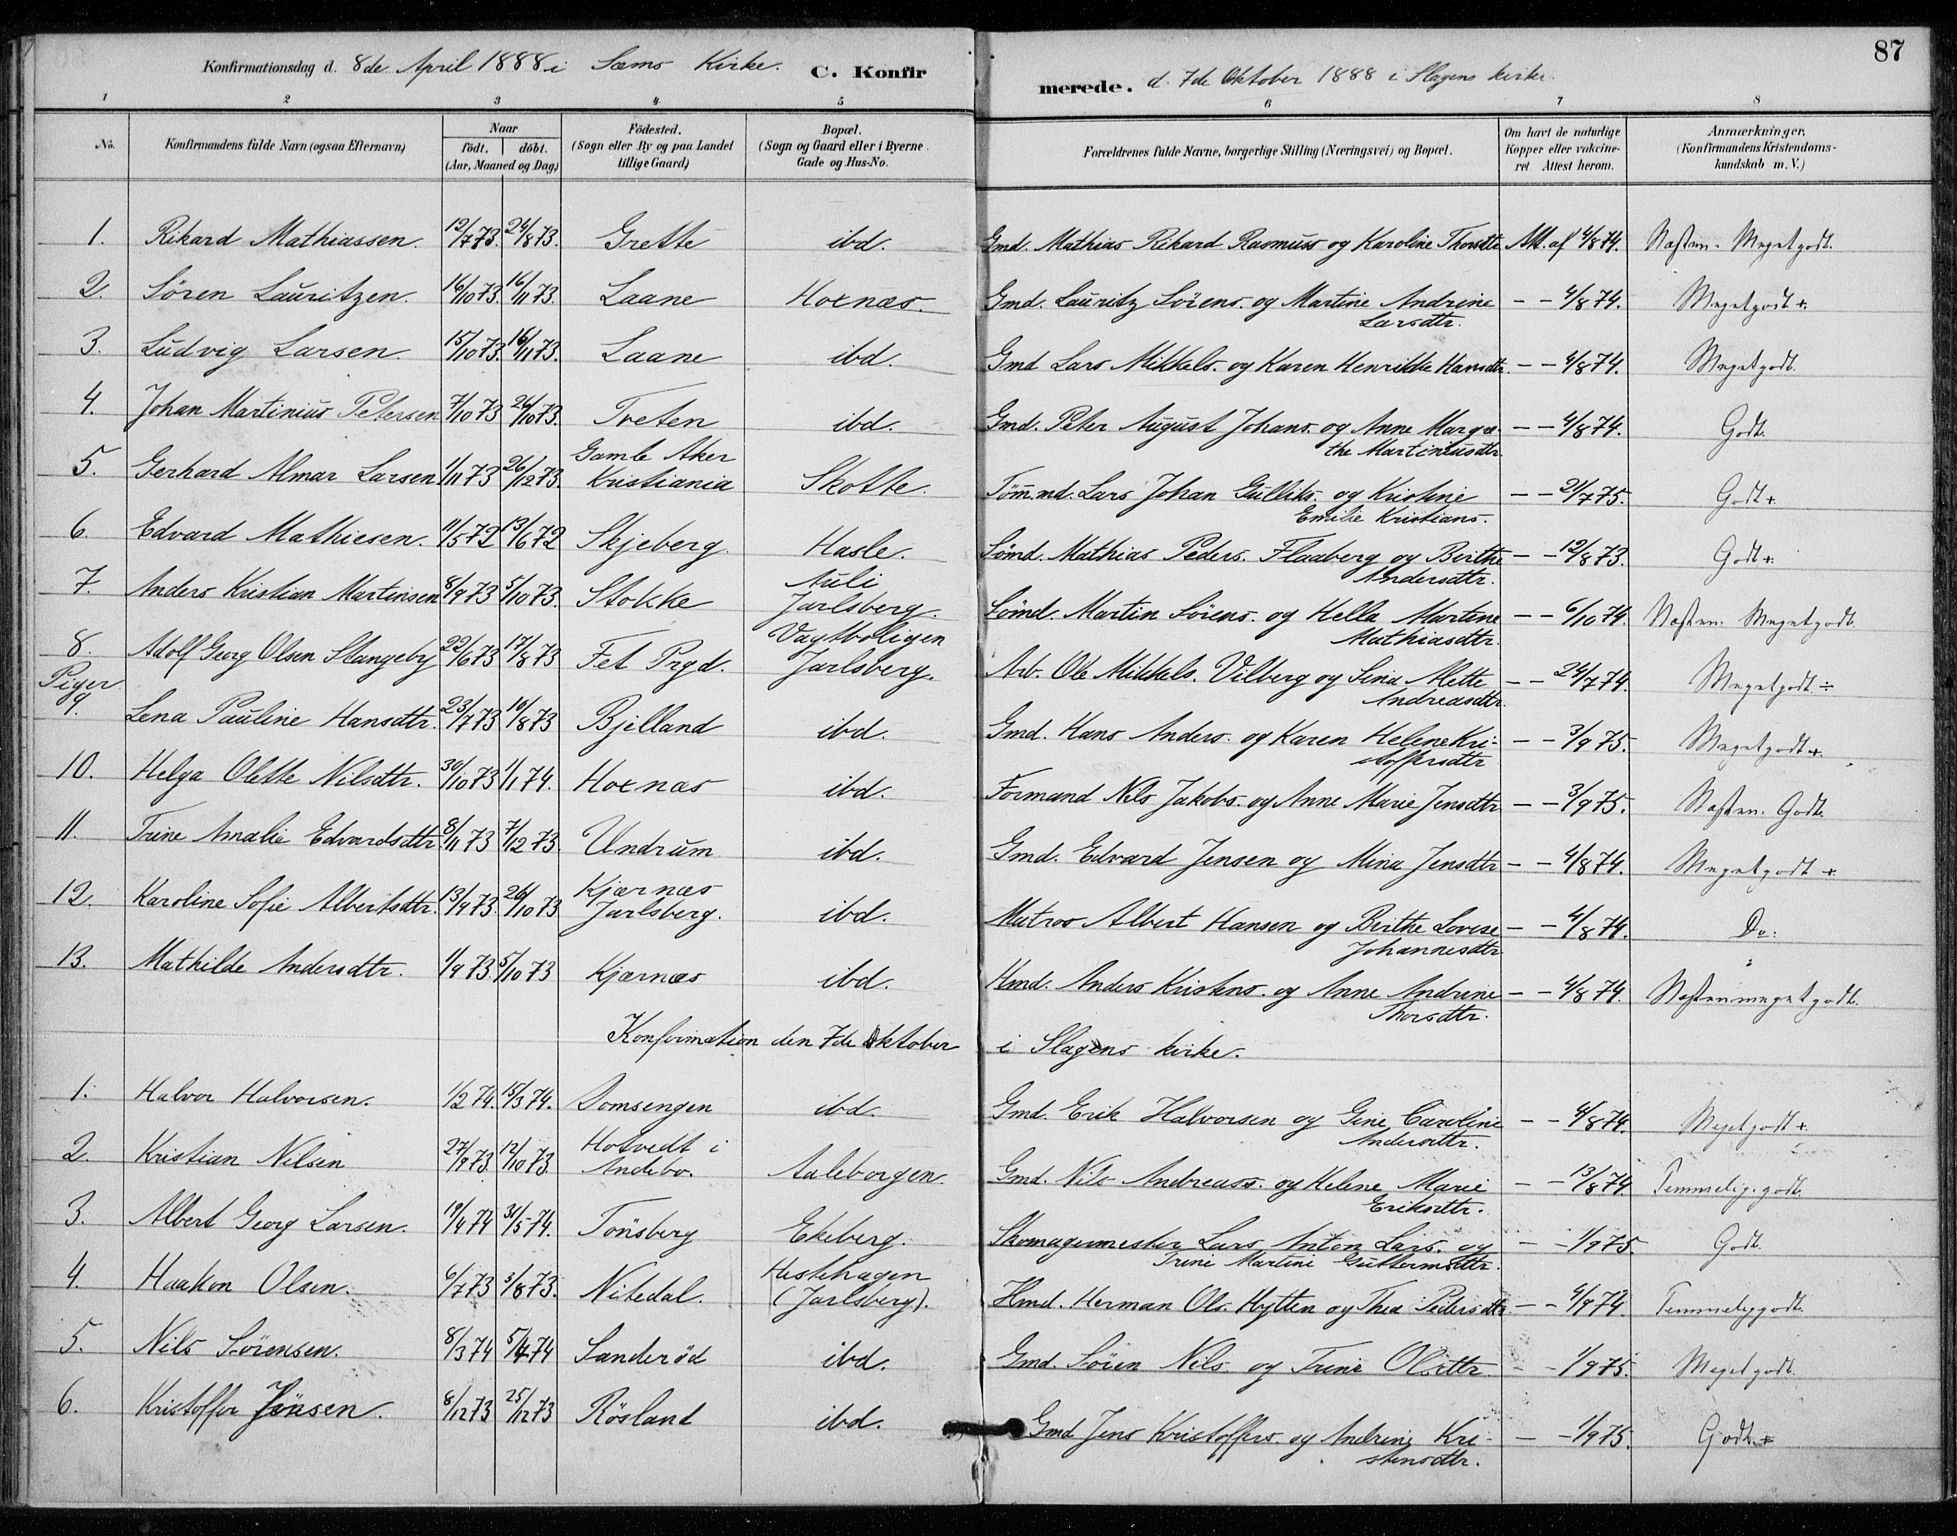 87
Konfirmationsdag d. 8de April 1888 i Sæms Kirke. C. Konfirmerede. d. 7de Oktober 1888 i Slagens kirke.
1 2 3 4 5 6 7 8
No. Konfirmandens fulde Navn (ogsaa Efternavn) Naar födt. döbt. (Aar, Maaned og Dag.) Födested. (Sogn eller By og paa Landet tillige Gaard.) Bopæl. (Sogn og Gaard eller i Byerne Gade og Hus-No. Forældrenes fulde Navne, borgerlige Stilling (Næringsvei) og Bopæl. Om havt de naturlige Kopper eller vakcineret Attest herom. Anmærkninger, (Konfirmandens Kristendomskundskab m. V.)
1. Rikard Mathiassen. 12/7 73. 24/8 73. Grette ibd. Gmd. Mathias Rikard Rasmuss og Karoline Thorsdtr. Att. af 4/8 74. Næsten. Megetgodt.
2. Sören Lauritzen. 16/10 73. 16/11 73. Laane Hoenæs. Gmd. Lauritz Sörens. og Martine Andrine Larsdtr. — — 4/8 74. Megetgodt +.
3. Ludvig Larsen 15/10 73. 16/11 73. Laane ibd. Gmd Lars Mikkels. og Karen Henrikke Hansdtr. — — 4/8 74. Megetgodt.
4. Johan Martinius Petersen 7/10 73 26/10 73. Treten ibd. Gmd. Peter August Johans. og Anne Margrethe Martiniusdtr — — 4/8 74. Godt.
5. Gerhard Almar Larsen 1/11 73 26/12 73. Gamle Aker Kristiania Skotte. Töm.md. Lars Johan Gulliks. og Kristine Emilie Kristians. — — 21/7 75. Godt +.
6. Edvard Mathiesen. 11/5 72 13/6 72 Skjeberg. Hasle. Sömd. Mathias Peders. Flaaberg og Berthe Andersdtr. — — 12/8 73. Godt +.
7. Anders Kristian Martinsen 8/9 73 5/10 73. Stokke Auli Jarlsberg. Sömd. Martin Sörens. og Hella Martine Mathiasdtr. — — 6/10 74. Næsten. Megetgodt.
8. Adolf Georg Olsen Slangeby 22/6 73 17/8 73 Fet Prgd. Vagtboligen Jarlsberg. Arb. Ole Mikkels. Vilberg og Sina Mette Andreasdtr. — — 24/7 74. Megetgodt ÷
Piger
9. Lena Pauline Hansdtr. 23/7 73 10/8 73 Bjelland ibd. Gmd. Hans Anders. og Karen Helene Kristoffersdtr — — 3/9 75. Megetgodt +.
10. Helga Olette Nilsdtr. 30/10 73 1/1 74. Hoenæs ibd. Formand Nils Jakobs. og Anne Marie Jensdtr — — 3/9 75. Næsten. Godt.
11. Trine Amalie Edvardsdtr. 8/11 73 7/12 73. Undrum ibd. Gmd. Edvard Jensen og Mina Jensdtr — — 4/8 74. Megetgodt +
12. Karoline Sofie Albertsdtr. 13/9 73. 26/10 73 Kjærnæs Jarlsberg. ibd. Matros Albert Hansen og Berthe Lovise Johannesdtr — — 4/8 74. Do:
13. Mathilde Andersdtr. 1/9 73. 5/10 73 Kjærnæs ibd. Hmd. Anders Kristens. og Anne Andrine Thorsdtr. — — 4/8 74. Næstenmegetgodt.
Konfirmation den 7de Oktober i Slagens kirke.
1. Halvor Halvorsen. 1/2 74. 15/3 74. Domsengen ibd. Gmd. Erik Halvorsen og Gine Caroline Andersdtr. — — 4/8 74. Megetgodt +.
2. Kristian Nilsen 27/9 73. 12/10 73. Hotvedt i Andebo. Aaleborgen. Gmd. Nils Andreass. og Helene Marie Eriksdtr. — — 13/8 74 Temmelig. godt.
3. Albert Georg Larsen. 19/4 74 31/5 74. Tönsberg Ekeberg. Skomagermester Lars Anton Lars. og Trine Martine Guttormsdtr. — — 1/9 75 Godt.
4. Haakon Olsen. 6/7 73 3/8 73. Nitedal. Hestehagen (Jarlsberg). Hmd. Herman Ols. Hytten og Thea Pedersdtr. — — 4/9 74. Temmeliggodt.
5. Nils Sörensen. 8/3 74 5/4 74 Sanderöd ibd. Gmd. Sören Nils. og Trine Olsdtr. — — 1/9 75. Megetgodt.
6. Kristoffer Jensen. 8/12 73 25/12 73 Rösland ibd. Gmd Jens Kristoffers. og Andrine Kristensdtr. — — 1/9 75. Godt. +